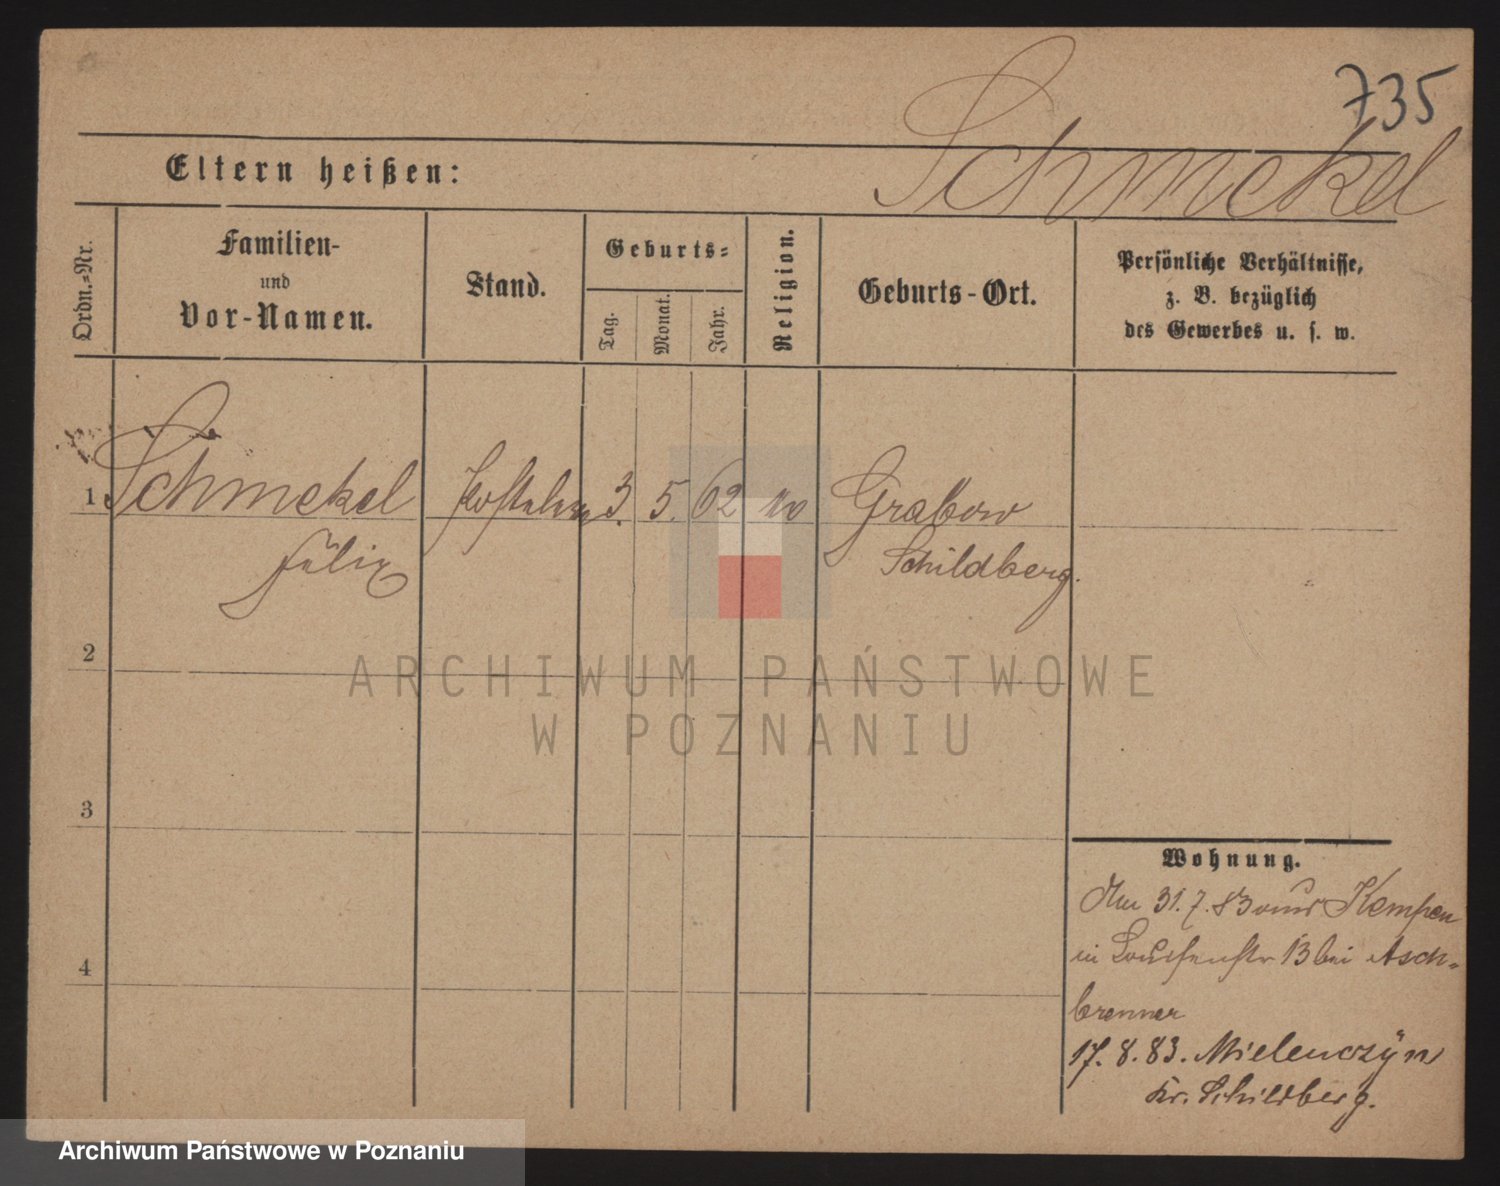 735
Schmekel
Eltern heißen:
Ordn.-Nr.
Familien-
und
Vor-Namen.
Stand.
Geburts-
Tag.
Monat.
Jahr.
Religion.
Geburts-Ort.
Persönliche Verhältnisse,
z. B. bezüglich
des Gewerbes u. s. w.
1 Schmekel 3. 5. 62 Grabow
Felix Schildberg.
2
3
4
Wohnung.
Am 31.7.83 aus Kempen
in Louisenstr 13 bei Asch-
brenner
17. 8. 83. Mielenczyn
Kr. Schildberg.
ARCHIWUM PAŃSTWOWE
W POZNANIU
Archiwum Państwowe w Poznaniu